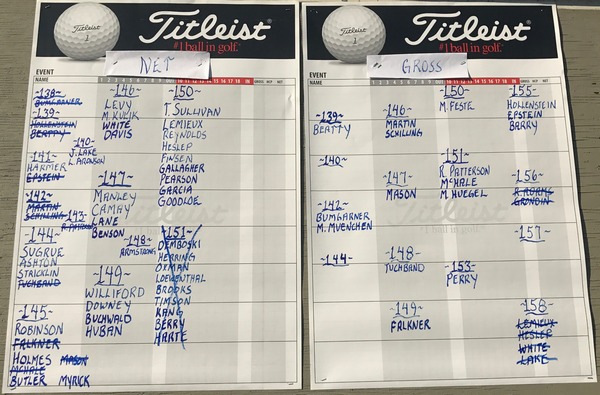 Titleist
1
Titleist
#1 ball in golf.
NET
EVENT
NAME
1 2 3 4 5 6 7 8 9 10 11 12 13 14 15 16 17 18
-138-
BUMGARNER
-139-
HOLLENSTEIN
BEATTY
-140-
J. LAKE
L. ARONSON
-141-
HARMER
EPSTEIN
-142-
MARTIN
SCHILLING
-143-
R. PATTERSON
-144-
SUGRUE
ASHTON
STRICKLIN
TUCHBAND
-145-
ROBINSON
FALKNER
HOLMES MASON
MCHALE
BUTLER MYRICK
-146-
LEVY
M. KULIK
WHITE
DAVIS
-147-
MANLEY
CAMAY
LANE
BENSON
-148-
ARMSTRONG
-149-
WILLIFORD
DOWNEY
BUCHWALD
HUBAN
-150-
T. SULLIVAN
LEMIEUX
REYNOLDS
HESLEP
FINSEN
GALLAGHER
PEARSON
GARCIA
GOODLOE
-151-
DEMBOSKI
HERRING
OXMAN
LOEWENTHAL
BROOKS
TIMSON
KANG
BERRY
HARTE
Titleist
1
Titleist
#1 ball in golf.
GROSS
EVENT
NAME
1 2 3 4 5 6 7 8 9 10 11 12 13 14 15 16 17 18
-139-
BEATTY
-140-
-142-
BUMGARNER
M. MUENCHEN
-144-
-146-
MARTIN
SCHILLING
-147-
MASON
-148-
TUCHBAND
-149-
FALKNER
-150-
M. FESTE
-151-
R. PATTERSON
MCHALE
M. HUEGEL
-153-
PERRY
-155-
HOLLENSTEIN
EPSTEIN
BARRY
-156-
GRONDIN
-157-
-158-
LEMIEUX
HESLEP
WHITE
LAKE